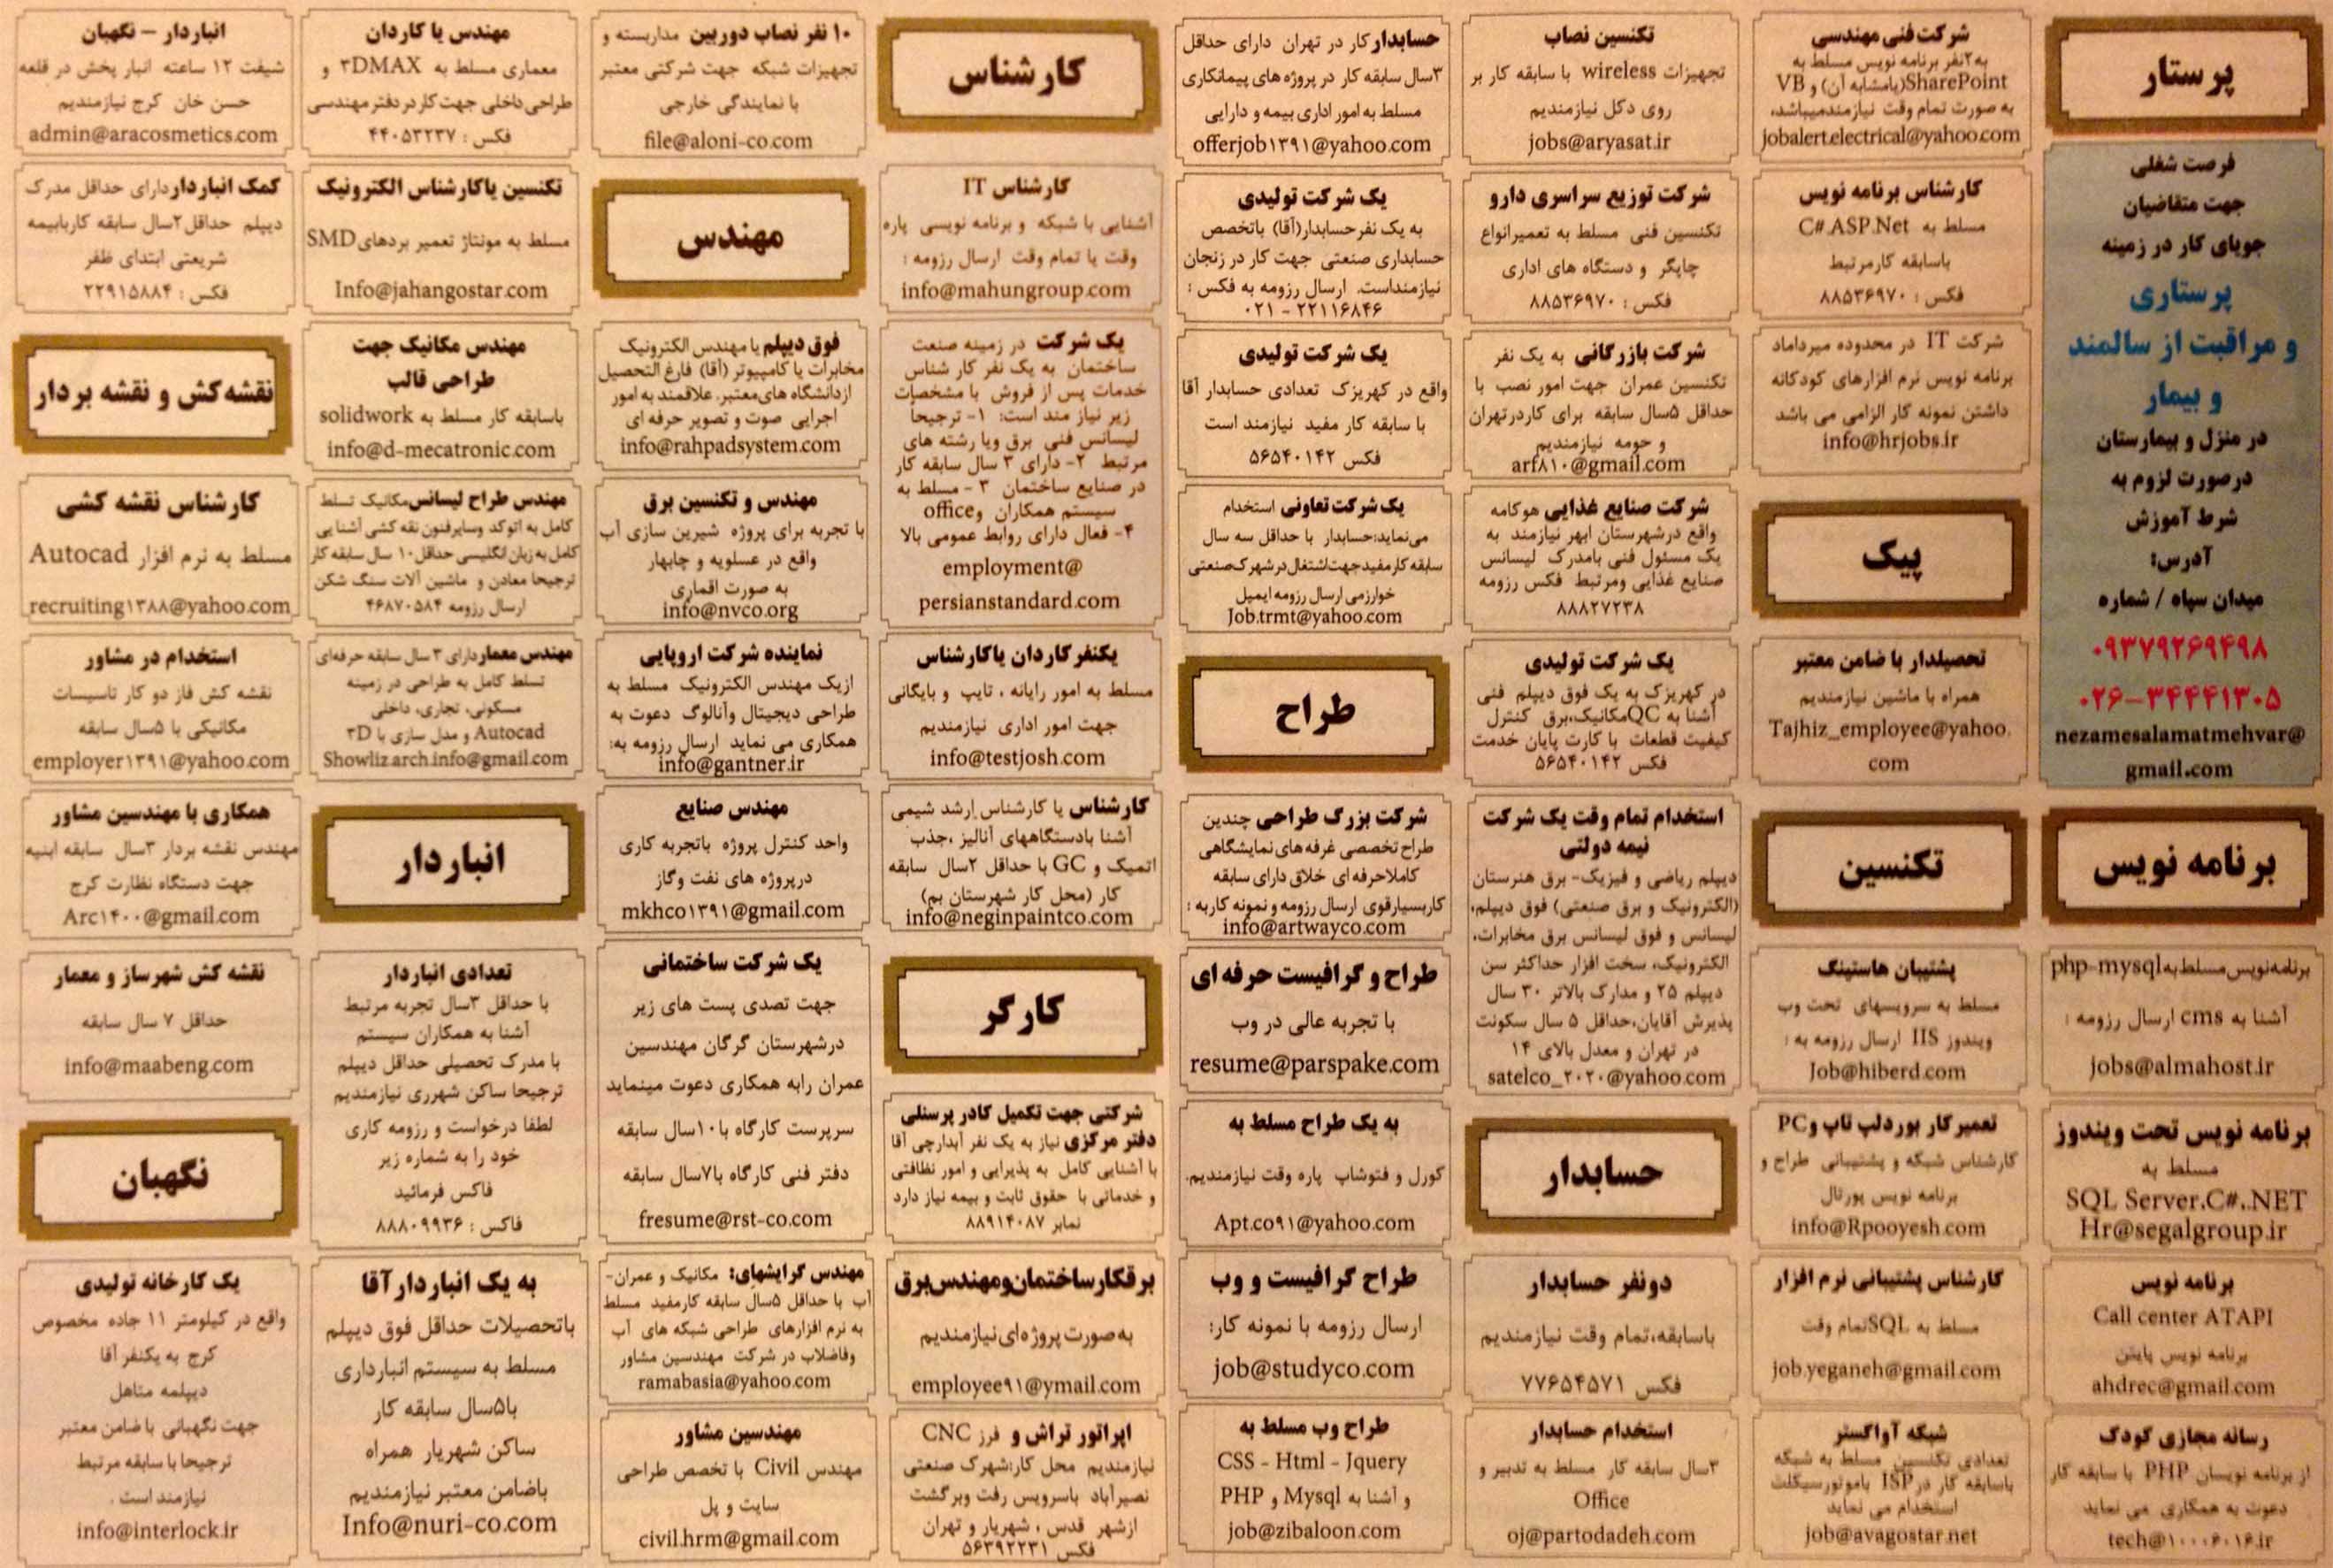 پرستار
فرصت شغلی
جهت متقاضیان
جویای کار در زمینه
پرستاری
و مراقبت از سالمند
و بیمار
در منزل و بیمارستان
درصورت لزوم به
شرط آموزش
آدرس:
میدان سپاه / شماره
۰۹۳۷۹۲۶۹۴۹۸
۰۲۶-۳۴۴۴۱۳۰۵
nezamesalamatmehvar@
gmail.com
برنامه نویس
برنامه‌نویس‌مسلط‌به php-mysql
آشنا به cms ارسال رزومه :
jobs@almahost.ir
برنامه نویس تحت ویندوز
مسلط به
SQL Server.C#..NET
Hr@segalgroup.ir
برنامه نویس
Call center ATAPI
برنامه نویس پایتن
ahdrec@gmail.com
رسانه مجازی کودک
از برنامه نویسان PHP با سابقه کار
دعوت به همکاری می نماید
tech@۱۰۰۰۶۰۱۶.ir
شرکت فنی مهندسی
به۲نفر برنامه نویس مسلط به
SharePoint(یامشابه آن) و VB
به صورت تمام وقت نیازمندمیباشد.
jobalert.electrical@yahoo.com
کارشناس برنامه نویس
مسلط به C#.ASP.Net
باسابقه کارمرتبط
فکس : ۸۸۵۳۶۹۷۰
شرکت IT در محدوده میرداماد
برنامه نویس نرم افزارهای کودکانه
داشتن نمونه کار الزامی می باشد
info@hrjobs.ir
پیک
تحصیلدار با ضامن معتبر
همراه با ماشین نیازمندیم
Tajhiz_employee@yahoo.
com
تکنسین
پشتیبان هاستینگ
مسلط به سرویسهای تحت وب
ویندوز IIS ارسال رزومه به :
Job@hiberd.com
تعمیرکار بوردلپ تاپ وPC
کارشناس شبکه و پشتیبانی طراح و
برنامه نویس پورتال
info@Rpooyesh.com
کارشناس پشتیبانی نرم افزار
مسلط به SQLتمام وقت
job.yeganeh@gmail.com
شبکه آواگستر
تعدادی تکنسین مسلط به شبکه
باسابقه کار درISP باموتورسیکلت
استخدام می نماید
job@avagostar.net
تکنسین نصاب
تجهیزات wireless با سابقه کار بر
روی دکل نیازمندیم
jobs@aryasat.ir
شرکت توزیع سراسری دارو
تکنسین فنی مسلط به تعمیرانواع
چاپگر و دستگاه های اداری
فکس : ۸۸۵۳۶۹۷۰
شرکت بازرگانی به یک نفر
تکنسین عمران جهت امور نصب با
حداقل ۵سال سابقه برای کاردرتهران
و حومه نیازمندیم
arf۸۱۰@gmail.com
شرکت صنایع غذایی هوکامه
واقع درشهرستان ابهر نیازمند به
یک مسئول فنی بامدرک لیسانس
صنایع غذایی ومرتبط فکس رزومه
۸۸۸۲۷۲۳۸
یک شرکت تولیدی
در کهریزک به یک فوق دیپلم فنی
آشنا به QCمکانیک،برق کنترل
کیفیت قطعات با کارت پایان خدمت
فکس ۵۶۵۴۰۱۴۲
استخدام تمام وقت یک شرکت
نیمه دولتی
دیپلم ریاضی و فیزیک- برق هنرستان
(الکترونیک و برق صنعتی) فوق دیپلم،
لیسانس و فوق لیسانس برق مخابرات،
الکترونیک، سخت افزار حداکثر سن
دیپلم ۲۵ و مدارک بالاتر ۳۰ سال
پذیرش آقایان،حداقل ۵ سال سکونت
در تهران و معدل بالای ۱۴
satelco_۲۰۲۰@yahoo.com
حسابدار
دونفر حسابدار
باسابقه،تمام وقت نیازمندیم
فکس ۷۷۶۵۴۵۷۱
استخدام حسابدار
۳سال سابقه کار مسلط به تدبیر و
Office
oj@partodadeh.com
حسابدارکار در تهران دارای حداقل
۳سال سابقه کار در پروژه های پیمانکاری
مسلط به امور اداری بیمه و دارایی
offerjob۱۳۹۱@yahoo.com
یک شرکت تولیدی
به یک نفرحسابدار(آقا) باتخصص
حسابداری صنعتی جهت کار در زنجان
نیازمنداست. ارسال رزومه به فکس :
۰۲۱ - ۲۲۱۱۶۸۴۶
یک شرکت تولیدی
واقع در کهریزک تعدادی حسابدار آقا
با سابقه کار مفید نیازمند است
فکس ۵۶۵۴۰۱۴۲
یک شرکت تعاونی استخدام
می‌نماید:حسابدار با حداقل سه سال
سابقه‌کارمفیدجهت‌اشتغال‌درشهرک‌صنعتی
خوارزمی ارسال رزومه ایمیل
Job.trmt@yahoo.com
طراح
شرکت بزرگ طراحی چندین
طراح تخصصی غرفه های نمایشگاهی
کاملاحرفه ای خلاق دارای سابقه
کاربسیارقوی ارسال رزومه و نمونه کاربه :
info@artwayco.com
طراح و گرافیست حرفه ای
با تجربه عالی در وب
resume@parspake.com
به یک طراح مسلط به
کورل و فتوشاپ پاره وقت نیازمندیم.
Apt.co۹۱@yahoo.com
طراح گرافیست و وب
ارسال رزومه با نمونه کار:
job@studyco.com
طراح وب مسلط به
CSS - Html - Jquery
و آشنا به Mysql و PHP
job@zibaloon.com
کارشناس
کارشناس IT
آشنایی با شبکه و برنامه نویسی پاره
وقت یا تمام وقت ارسال رزومه :
info@mahungroup.com
یک شرکت در زمینه صنعت
ساختمان به یک نفر کار شناس
خدمات پس از فروش با مشخصات
زیر نیاز مند است: ۱- ترجیحاً
لیسانس فنی برق ویا رشته های
مرتبط ۲- دارای ۳ سال سابقه کار
در صنایع ساختمان ۳ - مسلط به
سیستم همکاران وoffice
۴- فعال دارای روابط عمومی بالا
employment@
persianstandard.com
یکنفرکاردان یاکارشناس
مسلط به امور رایانه ، تایپ و بایگانی
جهت امور اداری نیازمندیم
info@testjosh.com
کارشناس یا کارشناس ارشد شیمی
آشنا بادستگاههای آنالیز ،جذب
اتمیک و GC با حداقل ۲سال سابقه
کار (محل کار شهرستان بم)
info@neginpaintco.com
کارگر
شرکتی جهت تکمیل کادر پرسنلی
دفتر مرکزی نیاز به یک نفر آبدارچی آقا
با آشنایی کامل به پذیرایی و امور نظافتی
و خدماتی با حقوق ثابت و بیمه نیاز دارد
نمابر ۸۸۹۱۴۰۸۷
برقکارساختمان‌ومهندس‌برق
به‌صورت پروژه‌ای‌نیازمندیم
employee۹۱@ymail.com
اپراتور تراش و فرز CNC
نیازمندیم محل کار:شهرک صنعتی
نصیرآباد باسرویس رفت وبرگشت
ازشهر قدس ، شهریار و تهران
فکس ۵۶۳۹۲۲۳۱
۱۰ نفر نصاب دوربین مداربسته و
تجهیزات شبکه جهت شرکتی معتبر
با نمایندگی خارجی
file@aloni-co.com
مهندس
فوق دیپلم یا مهندس الکترونیک
مخابرات یا کامپیوتر (آقا) فارغ التحصیل
ازدانشگاه های‌معتبر. علاقمند به امور
اجرایی صوت و تصویر حرفه ای
info@rahpadsystem.com
مهندس و تکنسین برق
با تجربه برای پروژه شیرین سازی آب
واقع در عسلویه و چابهار
به صورت اقماری
info@nvco.org
نماینده شرکت اروپایی
ازیک مهندس الکترونیک مسلط به
طراحی دیجیتال وآنالوگ دعوت به
همکاری می نماید ارسال رزومه به:
info@gantner.ir
مهندس صنایع
واحد کنترل پروژه باتجربه کاری
درپروژه های نفت وگاز
mkhco۱۳۹۱@gmail.com
یک شرکت ساختمانی
جهت تصدی پست های زیر
درشهرستان گرگان مهندسین
عمران رابه همکاری دعوت مینماید
سرپرست کارگاه با۱۰سال سابقه
دفتر فنی کارگاه با۷سال سابقه
fresume@rst-co.com
مهندس گرایشهای: مکانیک و عمران-
آب با حداقل ۵سال سابقه کارمفید مسلط
به نرم افزارهای طراحی شبکه های آب
وفاضلاب در شرکت مهندسین مشاور
ramabasia@yahoo.com
مهندسین مشاور
مهندس Civil با تخصص طراحی
سایت و پل
civil.hrm@gmail.com
مهندس یا کاردان
معماری مسلط به ۳DMAX و
طراحی‌داخلی جهت‌کاردردفترمهندسی
فکس : ۴۴۰۵۳۲۳۷
تکنسین یاکارشناس الکترونیک
مسلط به مونتاژ تعمیر بردهایSMD
Info@jahangostar.com
مهندس مکانیک جهت
طراحی قالب
باسابقه کار مسلط به solidwork
info@d-mecatronic.com
مهندس طراح لیسانس‌مکانیک تسلط
کامل به اتوکد وسایرفنون نقه کشی آشنایی
کامل‌به‌زبان‌انگلیسی حداقل۱۰ سال سابقه‌کار
ترجیحا معادن و ماشین آلات سنگ شکن
ارسال رزومه ۴۶۸۷۰۵۸۴
مهندس معماردارای ۳ سال سابقه حرفه‌ای
تسلط کامل به طراحی در زمینه
مسکونی، تجاری، داخلی
Autocad و مدل سازی با ۳D
Showliz.arch.info@gmail.com
انباردار
تعدادی انباردار
با حداقل ۳سال تجربه مرتبط
آشنا به همکاران سیستم
با مدرک تحصیلی حداقل دیپلم
ترجیحا ساکن شهرری نیازمندیم
لطفا درخواست و رزومه کاری
خود را به شماره زیر
فاکس فرمائید
فاکس : ۸۸۸۰۹۹۳۶
به یک انباردارآقا
باتحصیلات حداقل فوق دیپلم
مسلط به سیستم انبارداری
با۵سال سابقه کار
ساکن شهریار همراه
باضامن معتبر نیازمندیم
Info@nuri-co.com
انباردار - نگهبان
شیفت ۱۲ ساعته انبار پخش در قلعه
حسن خان کرج نیازمندیم
admin@aracosmetics.com
کمک انبارداردارای حداقل مدرک
دیپلم حداقل۲سال سابقه کاربابیمه
شریعتی ابتدای ظفر
فکس : ۲۲۹۱۵۸۸۴
نقشه کش و نقشه بردار
کارشناس نقشه کشی
مسلط به نرم افزار Autocad
recruiting۱۳۸۸@yahoo.com
استخدام در مشاور
نقشه کش فاز دو کار تاسیسات
مکانیکی با ۵سال سابقه
employer۱۳۹۱@yahoo.com
همکاری با مهندسین مشاور
مهندس نقشه بردار ۳سال سابقه ابنیه
جهت دستگاه نظارت کرج
Arc۱۴۰۰@gmail.com
نقشه کش شهرساز و معمار
حداقل ۷ سال سابقه
info@maabeng.com
نگهبان
یک کارخانه تولیدی
واقع در کیلومتر ۱۱ جاده مخصوص
کرج به یکنفر آقا
دیپلمه متاهل
جهت نگهبانی با ضامن معتبر
ترجیحا با سابقه مرتبط
نیازمند است .
info@interlock.ir